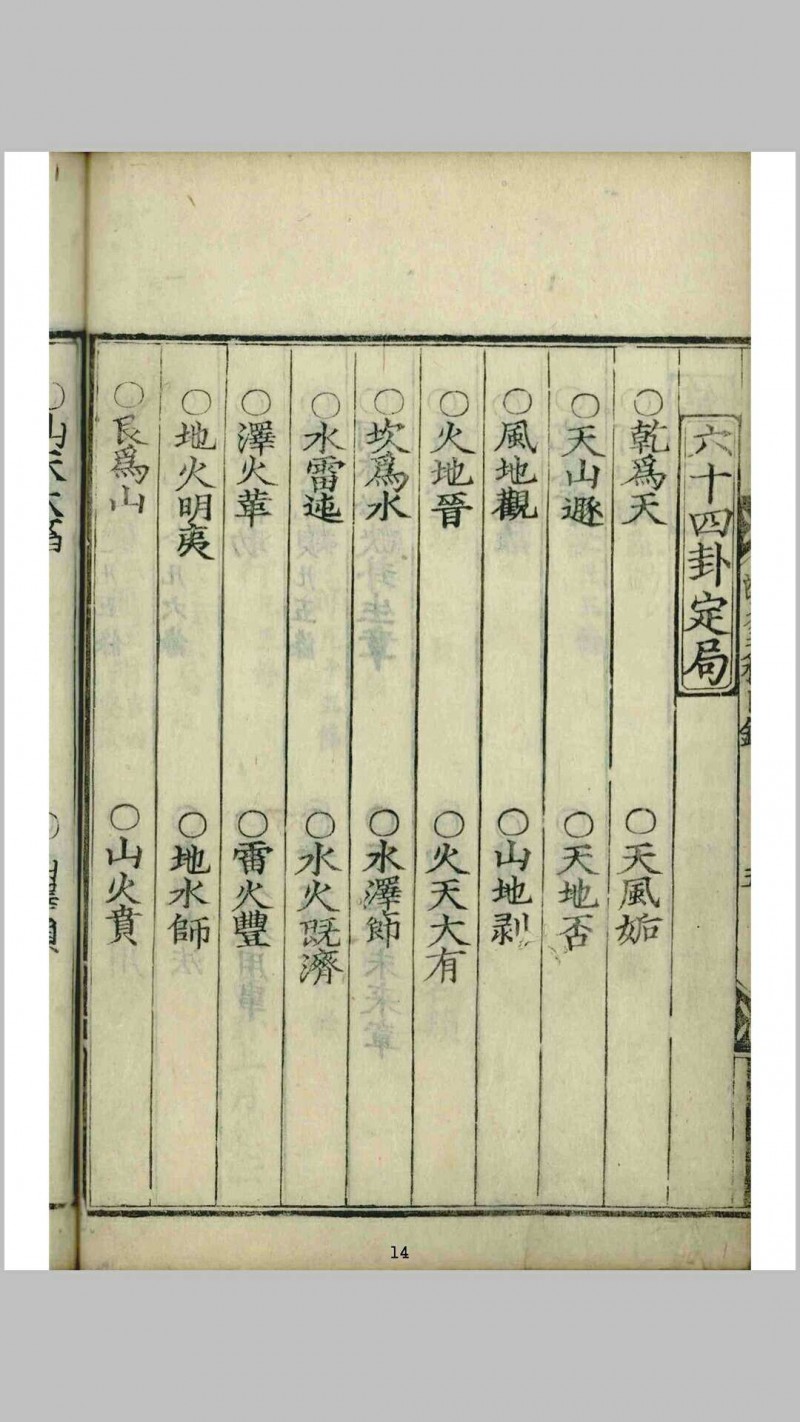 六十四卦定局
○乾爲天 ○天風姤
○天山遯 ○天地否
○風地觀 ○山地剥
○火地晉 ○火天大有
○坎爲水 ○水澤節
○水雷屯 ○水火既濟
○澤火革 ○雷火豐
○地火明夷 ○地水師
○艮爲山 ○山火賁
14